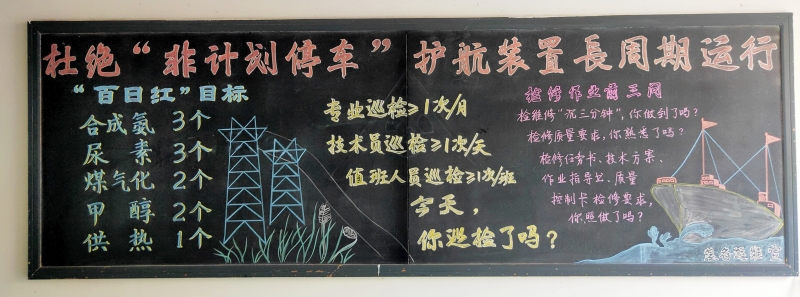 杜绝“非计划停车” 护航装置長周期运行
“百日红”目标
合成氨 3个
尿素 3个
煤气化 2个
甲醇 2个
供热 1个
专业巡检≥1次/月
技术员巡检≥1次/天
值班人员巡检≥1次/班
今天,
你巡检了吗?
检修作业前三问
检维修“沉三分钟”,你做到了吗?
检修质量要求,你熟悉了吗?
检修任务书、技术方案、
作业指导书、质量
控制卡检修要求,
你照做了吗?